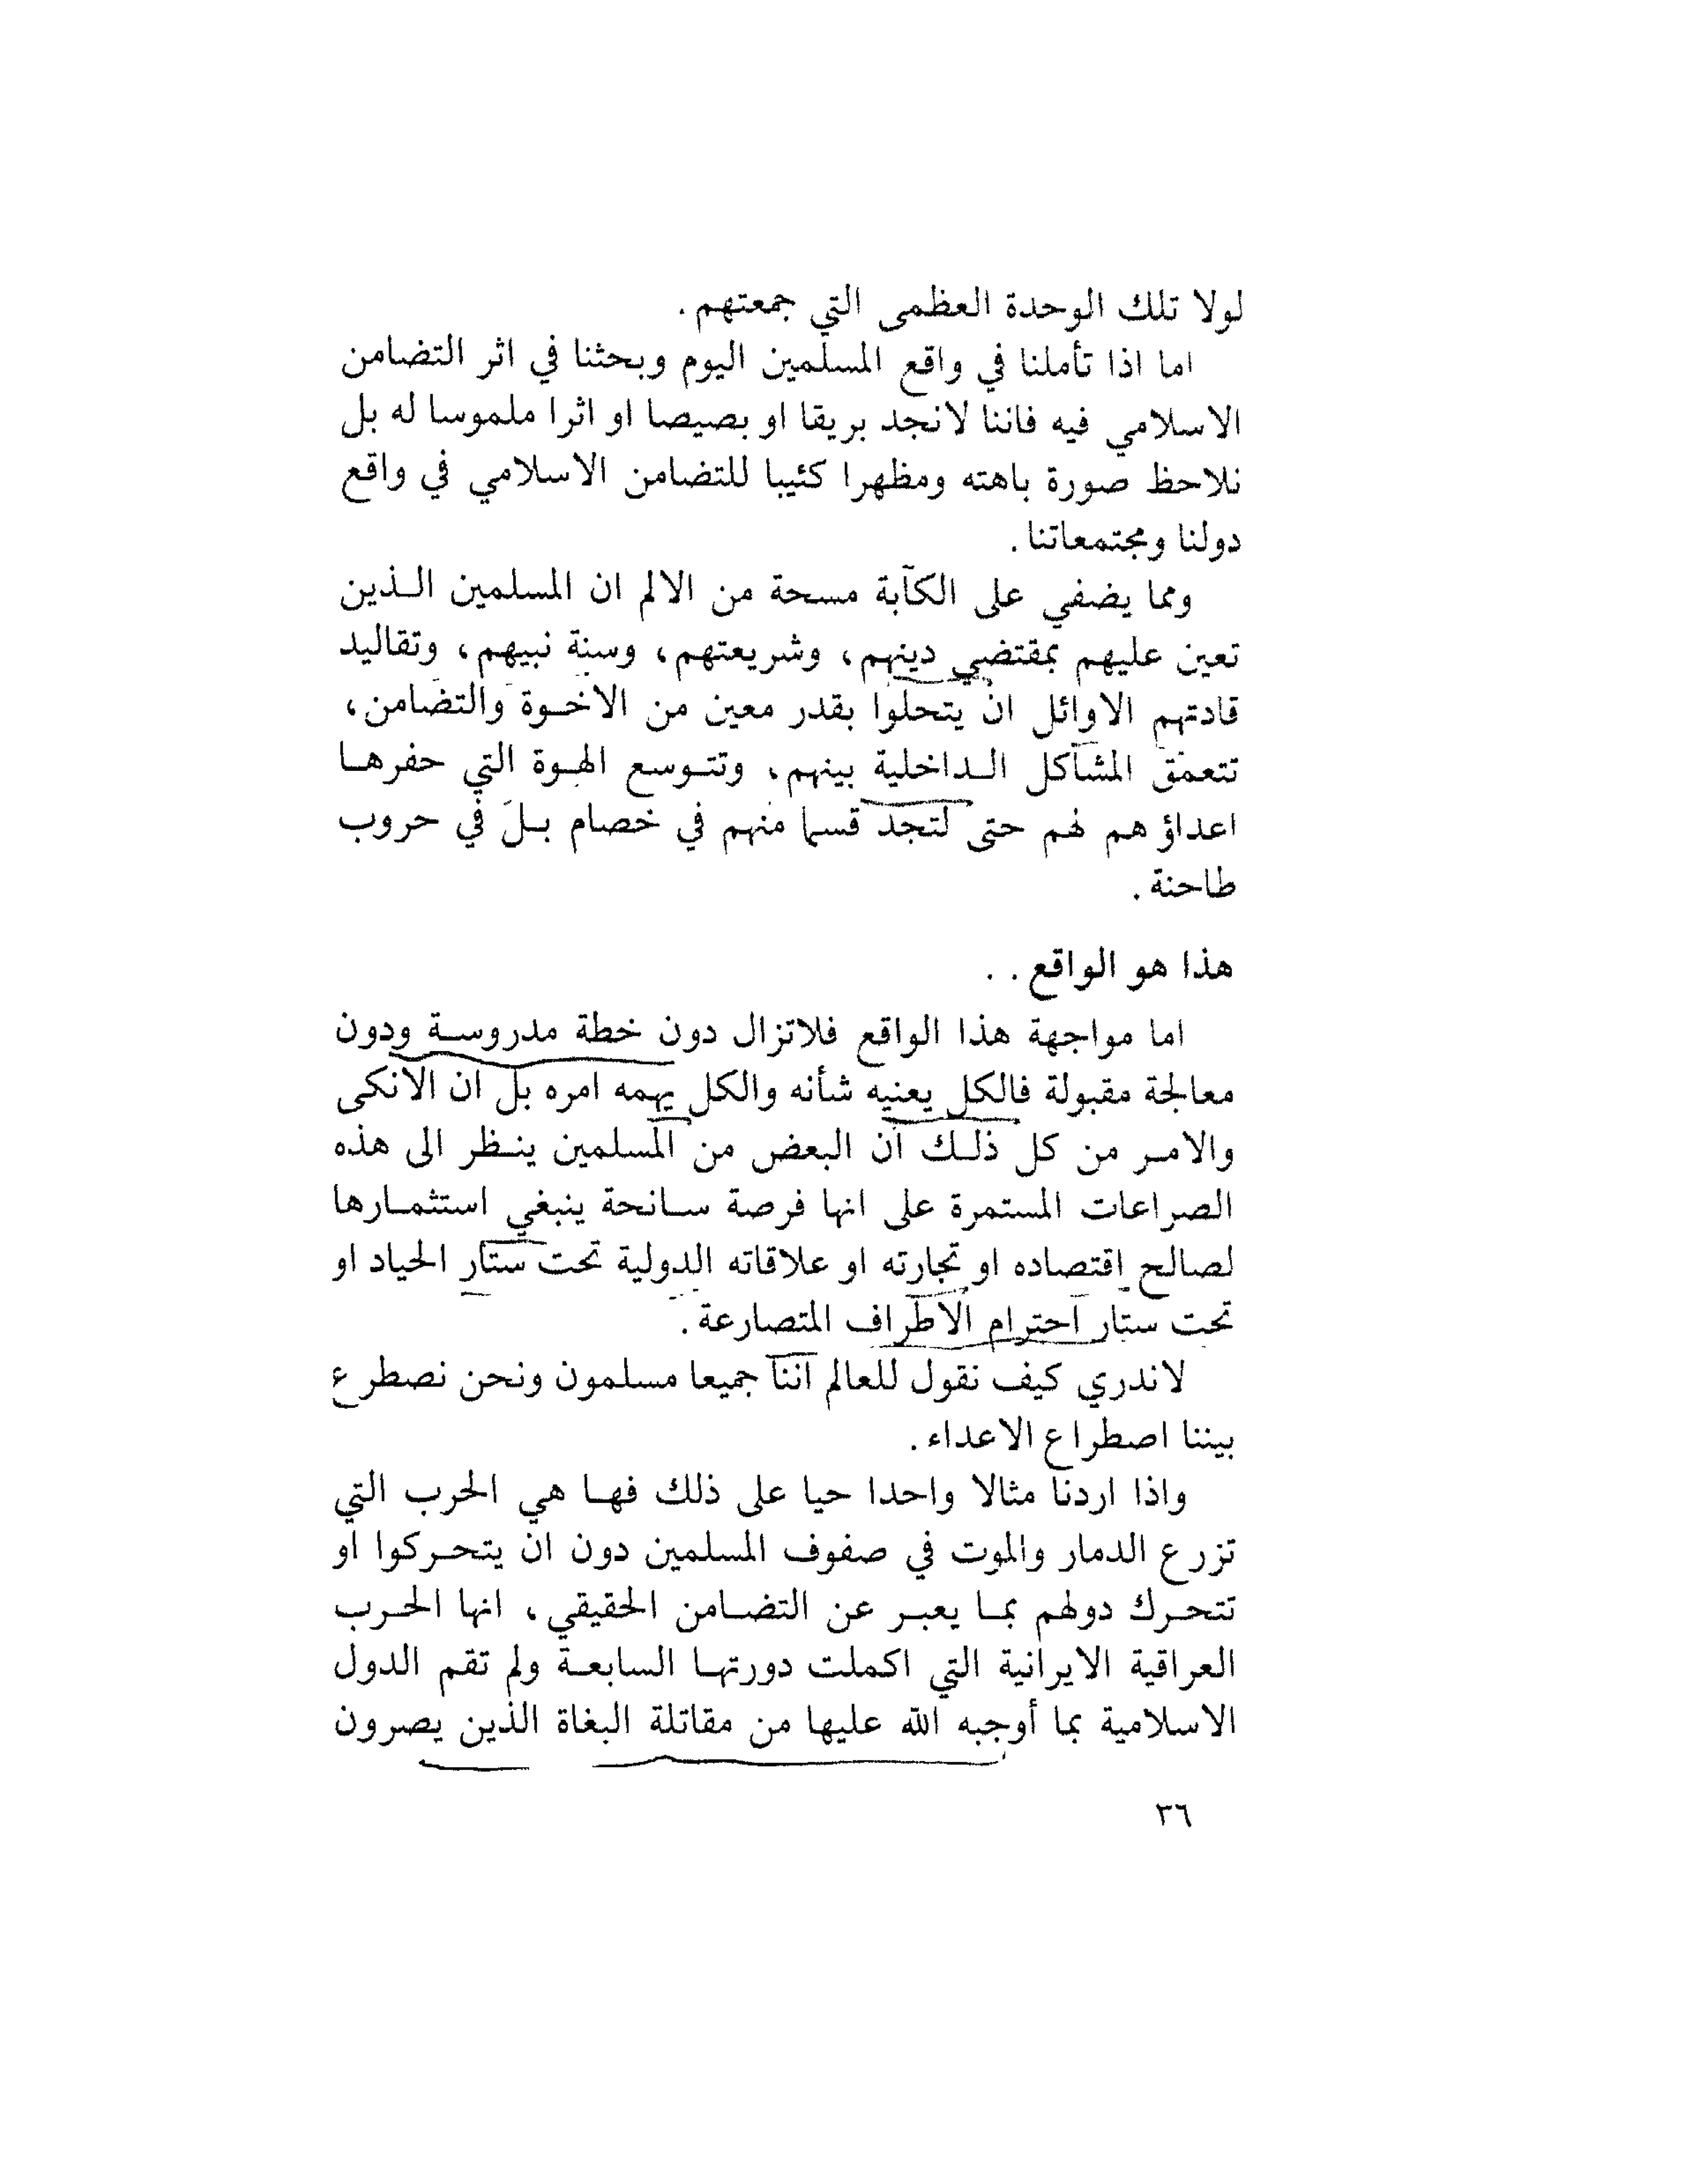 لولا تلك الوحدة العظمى التي جمعتهم .
اما اذا تأملنا في واقع المسلمين اليوم وبحثنا في اثر التضامن
الاسلامي فيه فاننا لانجد بريقا او بصيصا او اثرا ملموسا له بل
نلاحظ صورة باهته ومظهرا كئيبا للتضامن الاسلامي في واقع
دولنا ومجتمعاتنا .
ومما يضفي على الكآبة مسحة من الالم ان المسلمين الـذين
تعين عليهم بمقتضي دينهم ، وشريعتهم ، وسنة نبيهم ، وتقاليد
قادتهم الاوائل ان يتحلوا بقدر معين من الاخـوة والتضامن ،
تتعمق المشاكل الـداخلية بينهم ، وتتـوسع الهـوة التي حفرهـا
اعداؤ هم لهم حتى لتجد قسما منهم في خصام بـل في حروب
طاحنة .
هذا هو الواقع . .
اما مواجهة هذا الواقع فلاتزال دون خطة مدروسـة ودون
معالجة مقبولة فالكل يعنيه شأنه والكل يهمه امره بل ان الانكى
والامـر من كل ذلـك ان البعض من المسلمين ينـظر الى هذه
الصراعات المستمرة على انها فرصة سـانحة ينبغي استثمـارها
لصالح اقتصاده او تجارته او علاقاته الدولية تحت ستار الحياد او
تحت ستار احترام الاطراف المتصارعة .
لاندري كيف نقول للعالم اننا جميعا مسلمون ونحن نصطرع
بيننا اصطراع الاعداء .
واذا اردنا مثالا واحدا حيا على ذلك فهـا هي الحرب التي
تزرع الدمار والموت في صفوف المسلمين دون ان يتحـركوا او
تتحـرك دولهم بمـا يعبـر عن التضـامن الحقيقي ، انها الحـرب
العراقية الايرانية التي اكملت دورتهـا السابعـة ولم تقم الدول
الاسلامية بما أوجبه الله عليها من مقاتلة البغاة الذين يصرون
٣٦